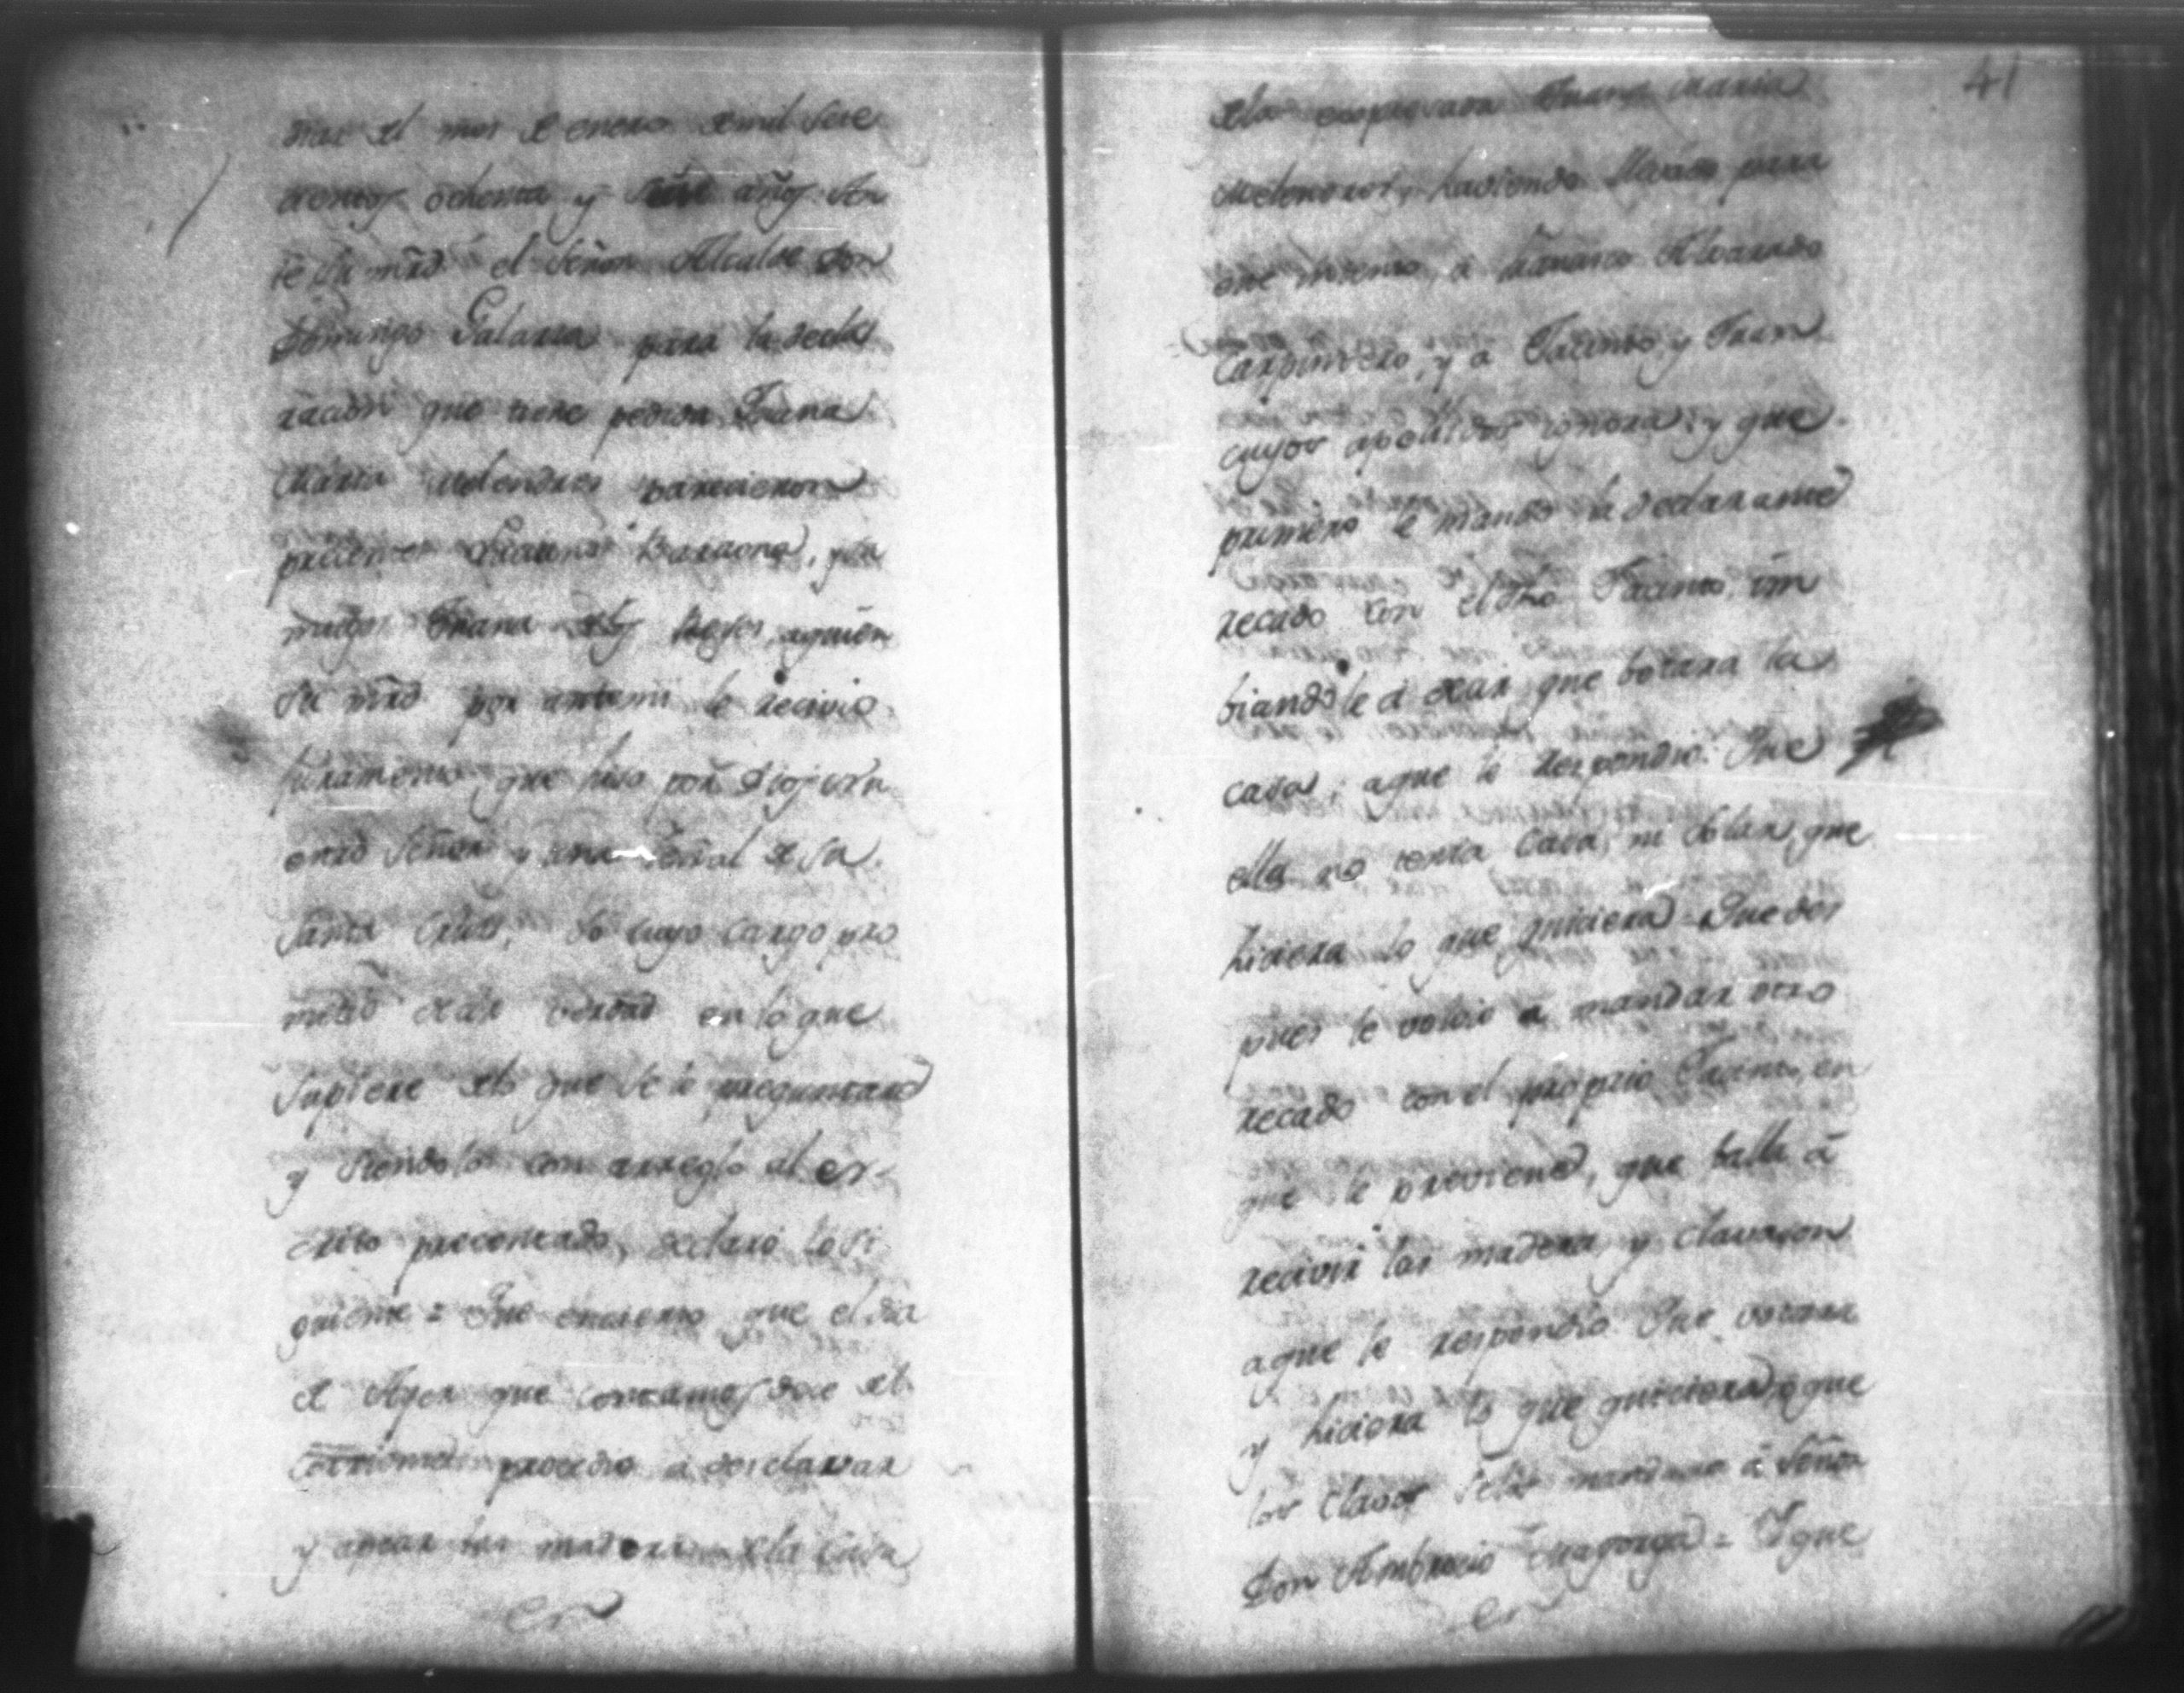 dias del mes de enero de mil sete
cientos ochenta y siete años An
te su mrd el Señor Alcalde don
Domingo Galarza para la decla
racion que tiene pedida Juana
Maria Melendres parecieron
precentes Baraona, y su
muger Juana de los Reyes, a quien
su mrd por antemi le recivio
juramento que hiso por Dios nrô
Señor y una señal de su
Santa Crus, so cuyo cargo pro
metio decir verdad en lo que
supiere de lo que se le preguntare
y siendolo con arreglo al es-
crito precentado, declaró lo si
guiente = Que es cierto que el dia
de Ayer que contamos doce del
corriente procedio a desclavar
y apear las maderas de la Casa
41
de la expresada Juana Maria
Melendres, haviendo llevado para
este intento, a Alvarado
Carpintero, y a Jacinto, y Juan
cuyos apelidos ignora: y que
primero le mandó la declarante
recado con el dho Jacinto im
biandole á decir que botara la
casa; a que le respondio: Que
ella no tenia Casa, ni Solar, que
hiciera lo que quiciera = Que des
pues le volvio a mandar otro
recado con el proprio Jacinto, en
que le previene, que balla á
recivir las maderas, y clavason
a que le respondio Que votara
y hiciera lo que quiciera, y que
los clavos se los mandara á Señor
Don Ambrocio Mayorga = Y que